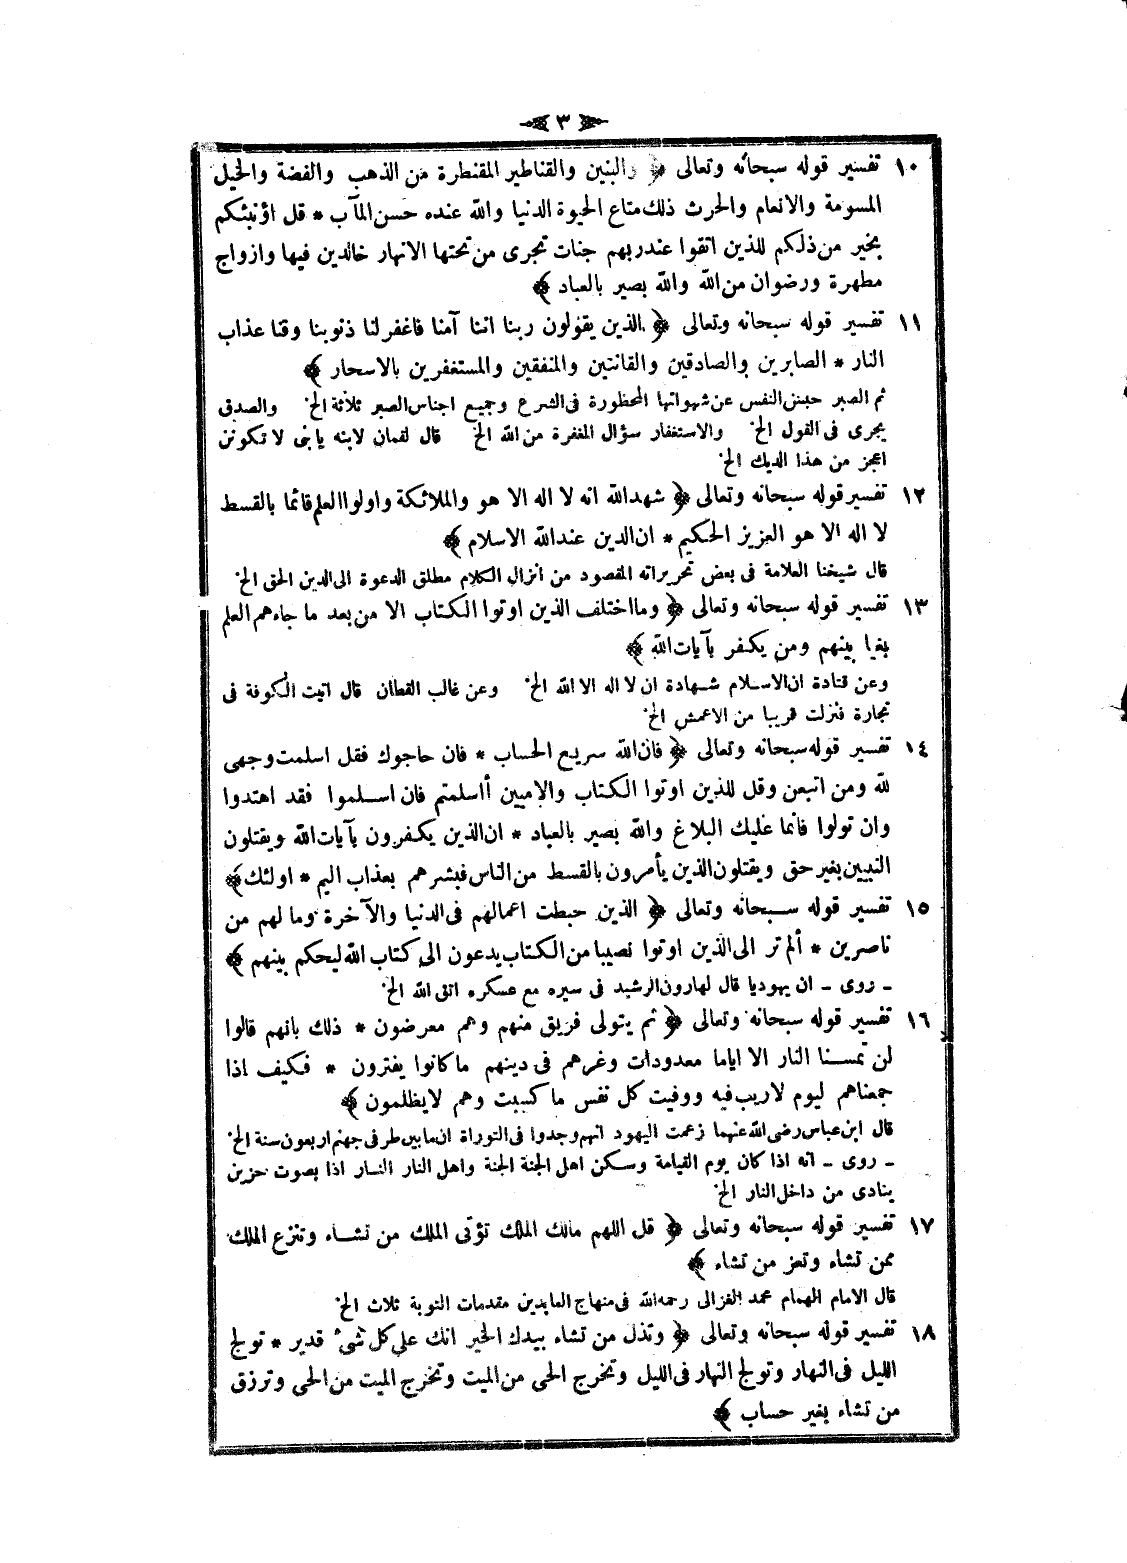 ٣
١٠ تفسير قوله سبحانه وتعالى ﴿ والبنين والقناطير المقنطرة من الذهب والفضة والخيل
المسومة والانعام والحرث ذلك متاع الحيوة الدنيا والله عنده حسن المآب * قل اؤنبئكم
بخير من ذلكم للذين اتقوا عند ربهم جنات تجرى من تحتها الانهار خالدين فيها وازواج
مطهرة ورضوان من الله والله بصير بالعباد ﴾
١١ تفسير قوله سبحانه وتعالى ﴿ الذين يقولون ربنا اننا آمنا فاغفر لنا ذنوبنا وقنا عذاب
النار * الصابرين والصادقين والقانتين والمنفقين والمستغفرين بالاسحار ﴾
ثم الصبر حبس النفس عن شهواتها المحظورة فى الشرع وجميع اجناس الصبر ثلاثة الخ والصدق
يجرى فى القول الخ والاستغفار سؤال المغفرة من الله الخ قال لقمان لابنه يابنى لا تكونن
اعجز من هذا الديك الخ
١٢ تفسير قوله سبحانه وتعالى ﴿ شهد الله انه لا اله الا هو والملائكة واولوا العلم قائما بالقسط
لا اله الا هو العزيز الحكيم * ان الدين عند الله الاسلام ﴾
قال شيخنا العلامة فى بعض تحريراته المقصود من انزال الكلام مطلق الدعوة الى الدين الحق الخ
١٣ تفسير قوله سبحانه وتعالى ﴿ وما اختلف الذين اوتوا الكتاب الا من بعد ما جاءهم العلم
بغيا بينهم ومن يكفر بآيات الله ﴾
وعن قتادة ان الاسلام شهادة ان لا اله الا الله الخ وعن غالب القطان قال اتيت الكوفة فى
تجارة فنزلت قريبا من الاعمش الخ
١٤ تفسير قوله سبحانه وتعالى ﴿ فان الله سريع الحساب * فان حاجوك فقل اسلمت وجهى
لله ومن اتبعن وقل للذين اوتوا الكتاب والاميين أاسلمتم فان اسلموا فقد اهتدوا
وان تولوا فانما عليك البلاغ والله بصير بالعباد * ان الذين يكفرون بآيات الله ويقتلون
النبيين بغير حق ويقتلون الذين يأمرون بالقسط من الناس فبشرهم بعذاب اليم * اولئك ﴾
١٥ تفسير قوله سبحانه وتعالى ﴿ الذين حبطت اعمالهم فى الدنيا والآخرة وما لهم من
ناصرين * ألم تر الى الذين اوتوا نصيبا من الكتاب يدعون الى كتاب الله ليحكم بينهم ﴾
ـ روى ـ ان يهوديا قال لهارون الرشيد فى سيره مع عسكره اتق الله الخ
١٦ تفسير قوله سبحانه وتعالى ﴿ ثم يتولى فريق منهم وهم معرضون * ذلك بانهم قالوا
لن تمسنا النار الا اياما معدودات وغرهم فى دينهم ما كانوا يفترون * فكيف اذا
جمعناهم ليوم لاريب فيه ووفيت كل نفس ما كسبت وهم لايظلمون ﴾
قال ابن عباس رضى الله عنهما زعمت اليهود انهم وجدوا فى التوراة ان ما بين طرفى جهنم اربعون سنة الخ
ـ روى ـ انه اذا كان يوم القيامة وسكن اهل الجنة الجنة واهل النار النار اذا بصوت حزين
ينادى من داخل النار الخ
١٧ تفسير قوله سبحانه وتعالى ﴿ قل اللهم مالك الملك تؤتى الملك من تشاء وتنزع الملك
ممن تشاء وتعز من تشاء ﴾
قال الامام الهمام محمد الغزالى رحمه الله فى منهاج العابدين مقدمات التوبة ثلاث الخ
١٨ تفسير قوله سبحانه وتعالى ﴿ وتذل من تشاء بيدك الخير انك على كل شئ قدير * تولج
الليل فى النهار وتولج النهار فى الليل وتخرج الحى من الميت وتخرج الميت من الحى وترزق
من تشاء بغير حساب ﴾